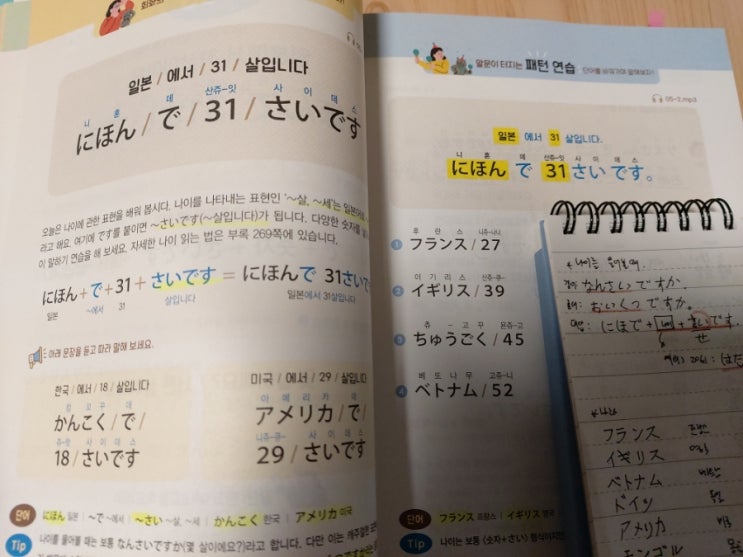 회화의
일본 / 에서 / 31 / 살입니다
니 홍 데 산쥬-잇 사 이 데 스
にほん / で / 31 / さいです
오늘은 나이에 관한 표현을 배워 봅시다. 나이를 나타내는 표현인 '~살, ~세'는 일본어로
라고 해요. 여기에 です를 붙이면 ~さいです(~살입니다)가 됩니다. 다양한 숫자를
이 말하기 연습을 해 보세요. 자세한 나이 읽는 법은 부록 269쪽에 있습니다.
にほん + で + 31 + さいです = にほんで 31さいで
일본 ~에서 31 살입니다 일본에서 31살입니다
아래 문장을 듣고 따라 말해 보세요.
한국 / 에서 / 18 / 살입니다
캉 꼬꾸 데
かんこく / で /
쥬-핫 사 이 데 스
18 / さいです
미국 / 에서 / 29 / 살입니다
아 메 리 카 데
アメリカ / で /
니쥬-큐- 사 이 데 스
29 / さいです
단어 にほん 일본 | ~で ~에서 | ~さい ~살, ~세 | かんこく 한국 | アメリカ 미국
Tip 나이를 물어볼 때는 보통 なんさいですか(몇 살이에요?)라고 합니다. 다만 이는
말문이 터지는 패턴 연습 단어를 바꿔가며 말해보자!
05-2.mp3
일본 에서 31 살입니다.
니 홍 데 산쥬-잇 사 이 데 스
にほん で 31 さい です。
후 란 스 니쥬-나나
1 フランス / 27
이 기 리 스 산쥬-큐-
2 イギリス / 39
츄 - 고 꾸 욘쥬-고
3 ちゅうごく / 45
베 토 나 무 고쥬-니
4 ベトナム / 52
단어 フランス 프랑스 | イギリス 영국
Tip 나이는 보통 <숫자+さい> 형식이지만
なんさいですか。
おいくつですか。
にほで + + さいです
せ
フランス
イギリス
ベトナム
ドイツ 독일
アメリカ 미국